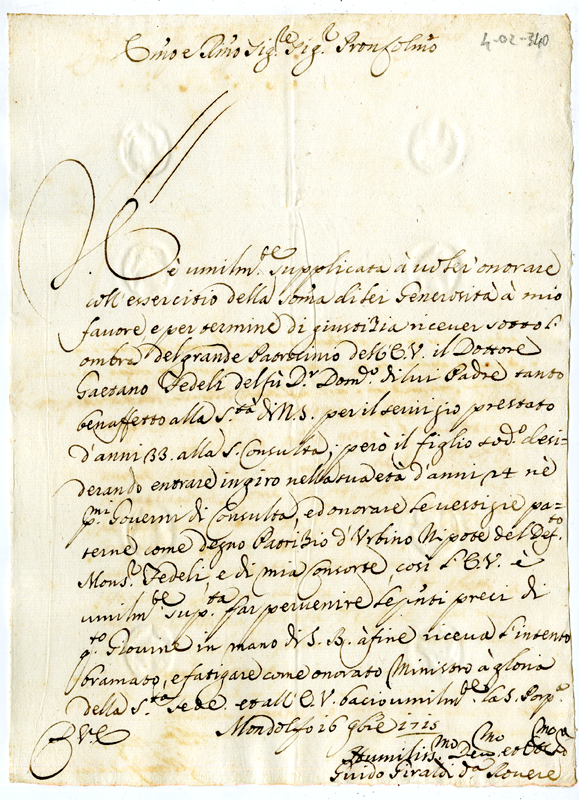 4-02-340
Emo e Rmo Sig.re Sig.r Pron Colmo
V.E. è umilm.te supplicata à voler onorare
coll'essercitio della somma di lei Generosità à mio
favore e per termine di giustizia ricever sotto l'
ombra del grande Patrocinio dell'E.V. il Dottore
Gaetano Fedeli del fù D.r Dom.co di lui Padre tanto
ben affetto alla S.tà di N.S. per il servizio prestato
d'anni 33. alla S. Consulta; però il figlio sod.o desi-
derando entrare in giro nella sua età d'anni 24 nè
p.mi Governi di Consulta, ed onorare le vestigie pa-
terne come degno Patrizio d'Urbino Nipote del Def.to
Mons.r Fedeli, e di mia Consorte, così l'E.V. è
umilm.te sup.ta far pervenire le pnti preci di
q.to Giovine in mano di S.B. à fine riceva l'intento
bramato, e fatigare come onorato Ministro à gloria
della S.ta Sede. et all'E.V. bacio umilm.te la S. Porp.a
Mondolfo 16 9bre 1715
V.E.
Humiliss.mo Dev.mo et
Guido Giraldi d.a Rovere